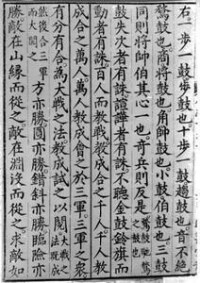 右一步一鼓步鼓也十步一鼓趨鼓也音不絕
騖鼓也商將鼓也角帥鼓也小鼓伯鼓也三鼓
同則將帥伯其心一也奇兵則反是騖鼓馳騖之鼓也
鼓失次者有誅諠譁者有誅不聽金鼓鈴旗而
動者有誅百人而教戰教成合之千人千人教
成合之萬人萬人教成會之於三軍三軍之衆
有分有合爲大戰之法教成試之以閱大戰之法既成
然後合三軍而大閱之方亦勝圓亦勝錯斜亦勝臨險亦
勝敵在山緣而從之敵在淵沒而從之求敵如